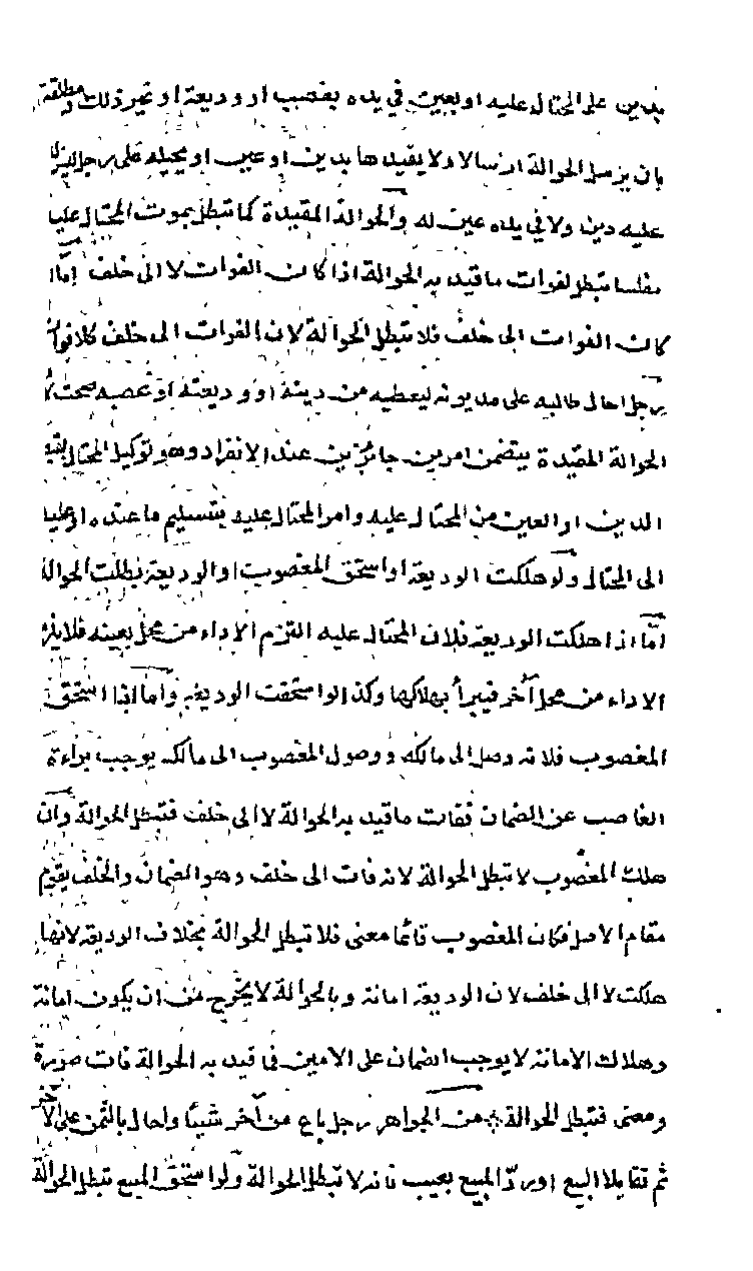 بدين على المحتال عليه او بعين في يده بغصب او وديعة او غير ذلك ومطلقة
بان يرسل الحوالة ارسالا ولا يقيدها بدين او عين او يحيله على رجل ليس
عليه دين ولا في يده عين له والحوالة المقيدة كما تبطل بموت المحتال عليه
مفلسا تبطل لفوات ما قيد به الحوالة اذا كان الفوات لا الى خلف امّا اذا
كان الفوات الى خلف فلا تبطل الحوالة لان الفوات الى خلف كلا فوات
رجل احال طالبه على مديونه ليعطيه من دينه او وديعته او غصبه صحت لان
الحوالة المقيدة يتضمن امرين جائزين عند الانفراد وهو توكيل المحتال بقبض
الدين او العين من المحتال عليه وامر المحتال عليه بتسليم ما عنده او عليه
الى المحتال ولو هلكت الوديعة او استحق المغصوب او الوديعة بطلت الحوالة
امّا اذا هلكت الوديعة فلان المحتال عليه التزم الاداء من محل بعينه فلا يلزمه
الاداء من محل آخر فيبرأ بهلاكها وكذا لو استحقت الوديعة وامّا اذا استحق
المغصوب فلانه وصل الى مالكه ووصول المغصوب الى مالكه يوجب براءة
الغاصب عن الضمان ففات ما قيد به الحوالة لا الى خلف فتبطل الحوالة وان
هلك المغصوب لا تبطل الحوالة لانه فات الى خلف وهو الضمان والخلف يقوم
مقام الاصل فكان المغصوب قائما معنى فلا تبطل الحوالة بخلاف الوديعة لانها
هلكت لا الى خلف لان الوديعة امانة وبالحوالة لا يخرج من ان يكون امانة
وهلاك الامانة لا يوجب الضمان على الامين في قيد به الحوالة فات صورة
ومعنى فتبطل الحوالة من الجواهر رجل باع من آخر شيئا واحال بالثمن على آخر
ثم تقايلا البيع او ردّ المبيع بعيب فانه لا تبطل الحوالة ولو استحق المبيع تبطل الحوالة